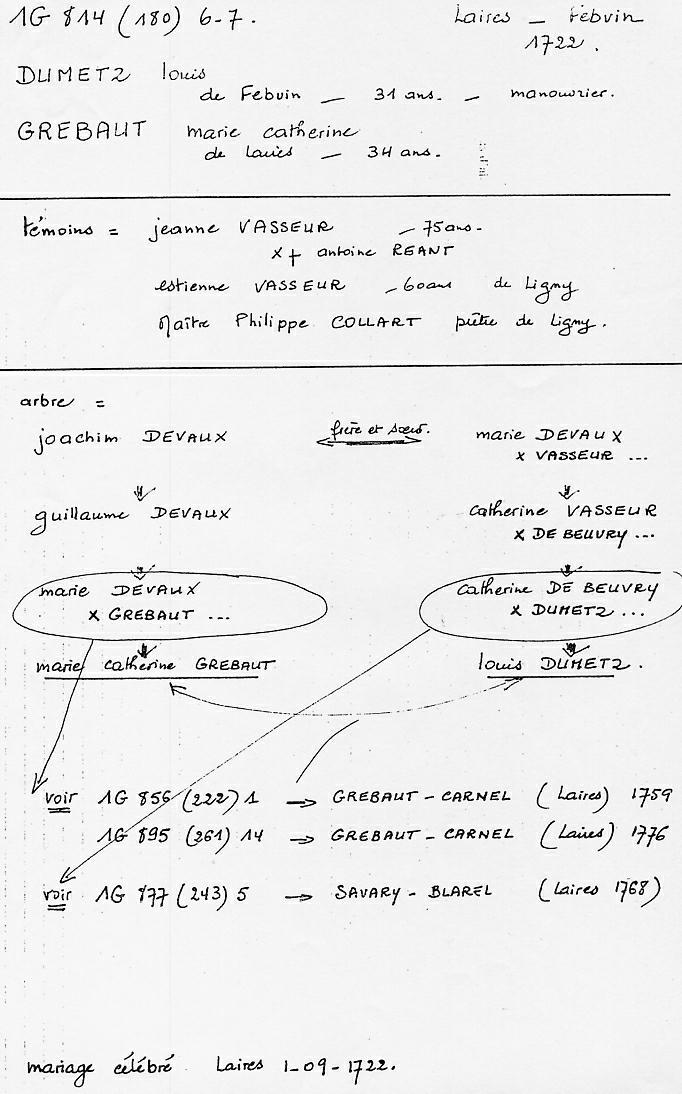 1G 814 (180) 6-7. Laires - Febvin
1722.
DUMETZ louis
de Febvin - 31 ans. - manouvrier.
GREBAUT marie catherine
de Laires - 34 ans.
témoins = jeanne VASSEUR - 75 ans.
x + antoine REANT
estienne VASSEUR - 60 ans de Ligny
Maître Philippe COLLART prêtre de Ligny.
arbre =
joachim DEVAUX frère et soeur. marie DEVAUX
x VASSEUR ...
guillaume DEVAUX catherine VASSEUR
x DE BEUVRY ...
marie DEVAUX catherine DE BEUVRY
x GREBAUT ... x DUMETZ ...
marie catherine GREBAUT louis DUMETZ.
voir 1G 856 (222) 1 → GREBAUT - CARNEL (Laires) 1759
1G 895 (261) 14 → GREBAUT - CARNEL (Laires) 1776
voir 1G 877 (243) 5 → SAVARY - BLAREL (Laires 1768)
mariage célébré Laires 1-09-1722.